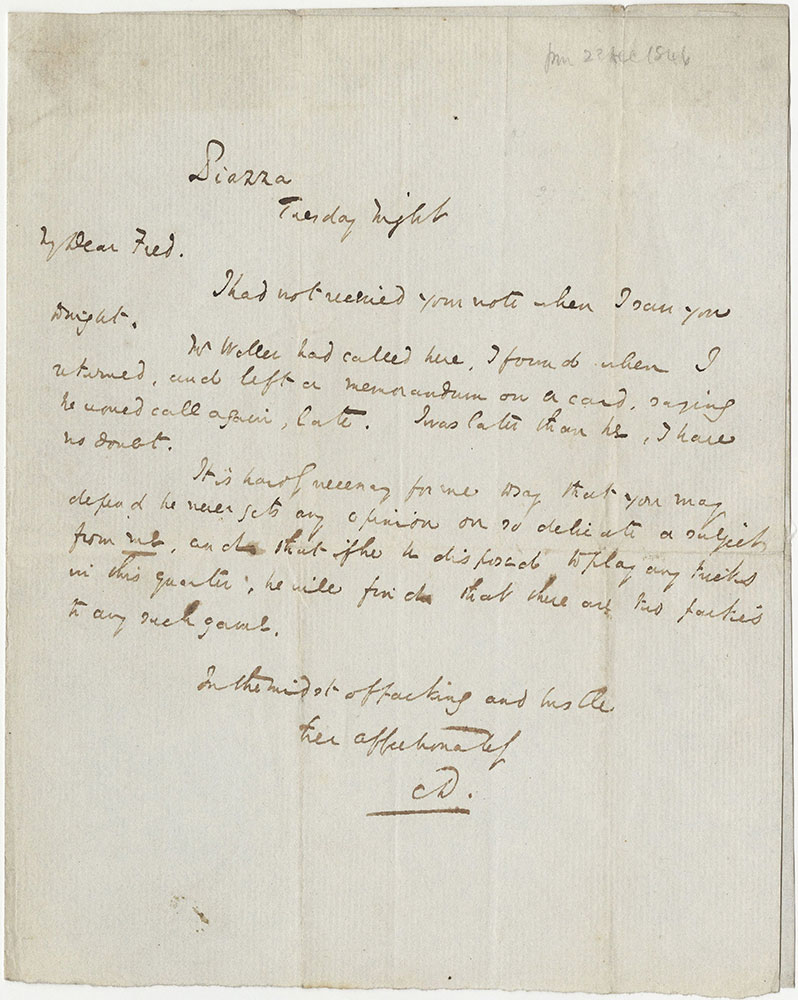 pm 22 Dec 1846
Piazza
Tuesday Night
My Dear Fred.
I had not received your note when I saw you
tonight.
Mr Weller had called here, I found when I
returned, and left a memorandum on a card, saying
he would call again, late. I was later than he, I have
no doubt.
It is hardly necessary for me to say that you may
depend he never gets any opinion on so delicate a subject
from me, and that if he be disposed to play any tricks
in this quarter, he will find that there are two parties
to any such game.
In the midst of packing and bustle
Ever affectionately
CD.